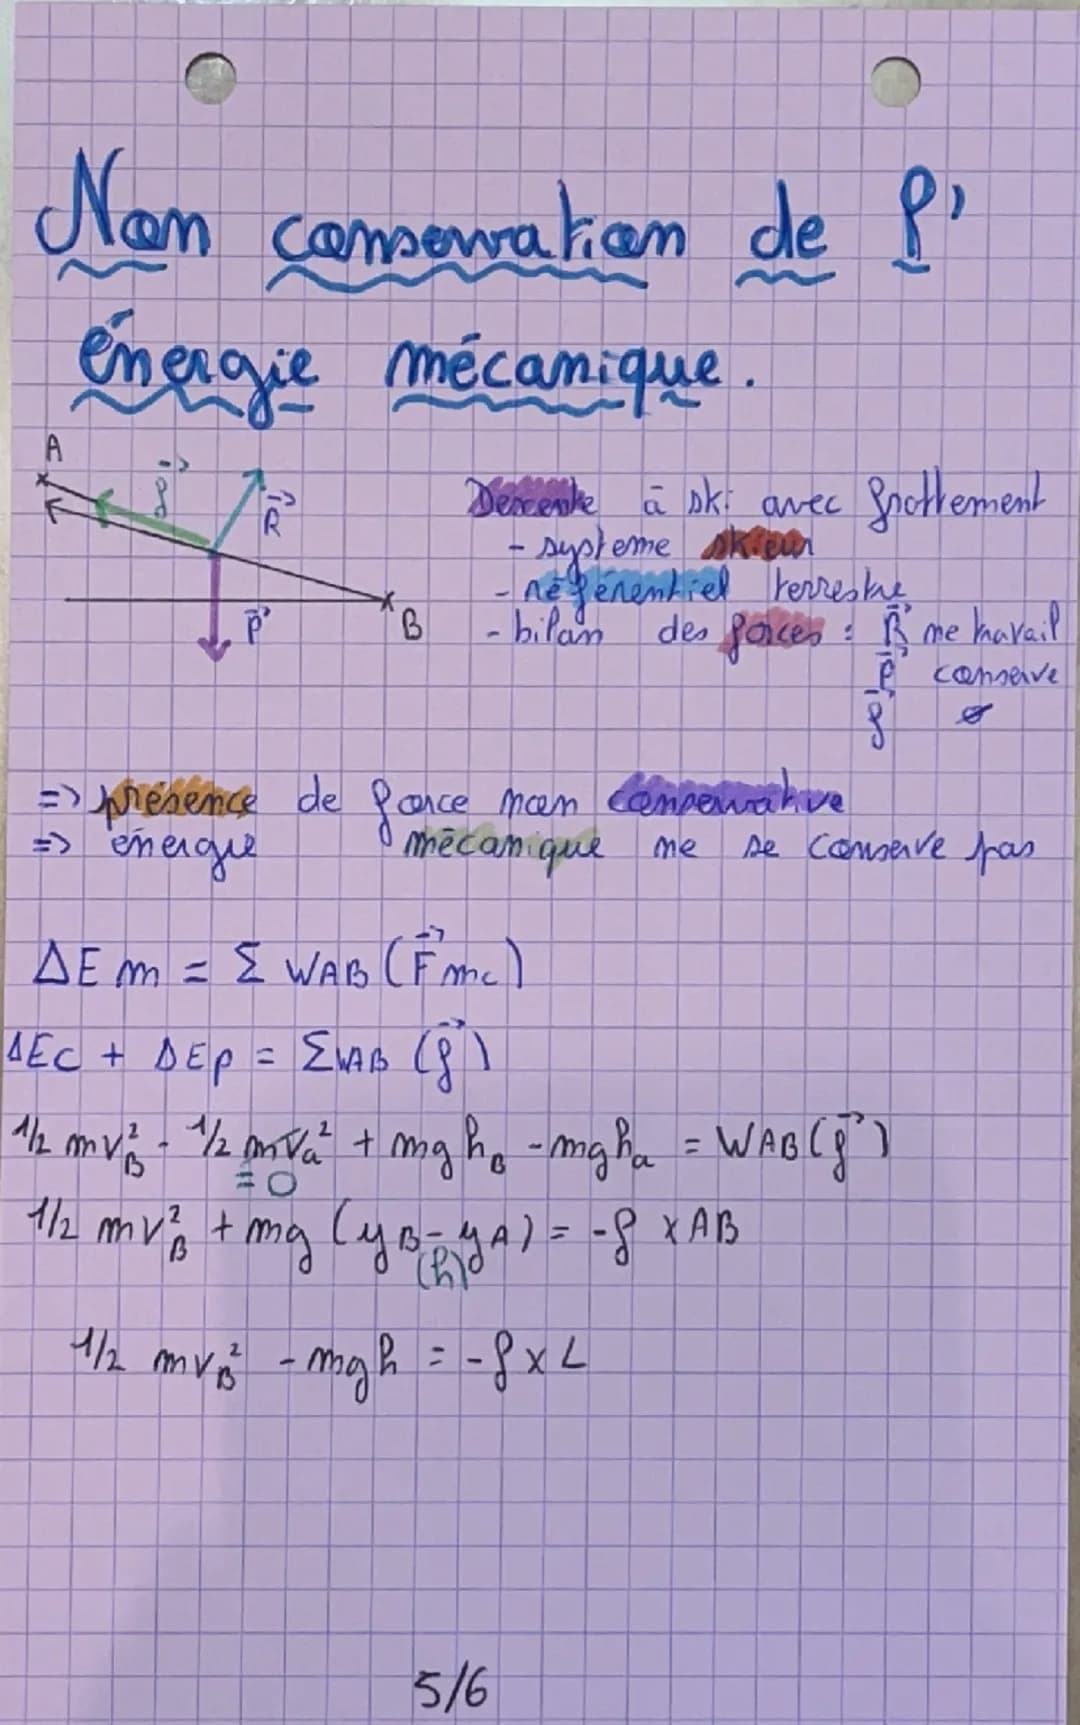 Non conservation de l'
énergie mécanique.
A
f
R
P
B
Descente à ski avec frottement
- systeme skieur
- référentiel terrestre
- bilan des forces : R ne travail
P conserve
f ø
=> présence de force non conservative
=> énergie mécanique ne se conserve pas
ΔEm = Σ WAB (F nc)
ΔEc + ΔEp = ΣWAB (f)
1/2 mv²B - 1/2 mva² + mg hB - mgha = WAB(f)
= 0
1/2 mv²B + mg (yB - yA) = -f x AB
(h)
1/2 mvB² - mgh = -f x L
5/6